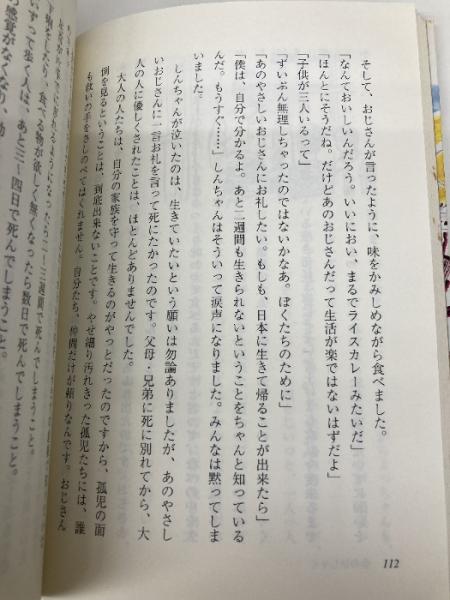 そして、おじさんが言ったように、味をかみしめながら食べました。
「なんておいしいんだろう。いいにおい、まるでライスカレーみたいだ」
「ほんとにそうだね。だけどあのおじさんだって生活が楽ではないはずだよ」
「子供が三人いるって」
「ずいぶん無理しちゃったのではないかなあ。ぼくたちのために」
「あのやさしいおじさんにお礼したい。もしも、日本に生きて帰ることが出来たら」
「僕は、自分で分かるよ。あと二週間も生きられないということをちゃんと知っている
んだ。もうすぐ……」しんちゃんはそういって涙声になりました。みんなは黙ってしま
いました。
しんちゃんが泣いたのは、生きていたいという願いは勿論ありましたが、あのやさし
いおじさんに一言お礼を言って死にたかったのです。父母・兄弟に死に別れてから、大
人の人に優しくされたことは、ほとんどありませんでした。
大人の人たちは、自分の家族を守って生きるのがやっとだったのですから、孤児の面
倒を見るということは、到底出来ないことです。やせ細り汚れきった孤児たちには、誰
も救いの手をさしのべてはくれません。自分たち、仲間だけが頼りなんです。おじさん
112
見かけるようになったら二〜三週間で死んでしまうこと。
下痢をしたり、食べる物が欲しく無くなったら数日で死んでしまうこと。
ずって歩く人は、あと三〜四日で死んでしまうこと。
の感覚がなくなり、